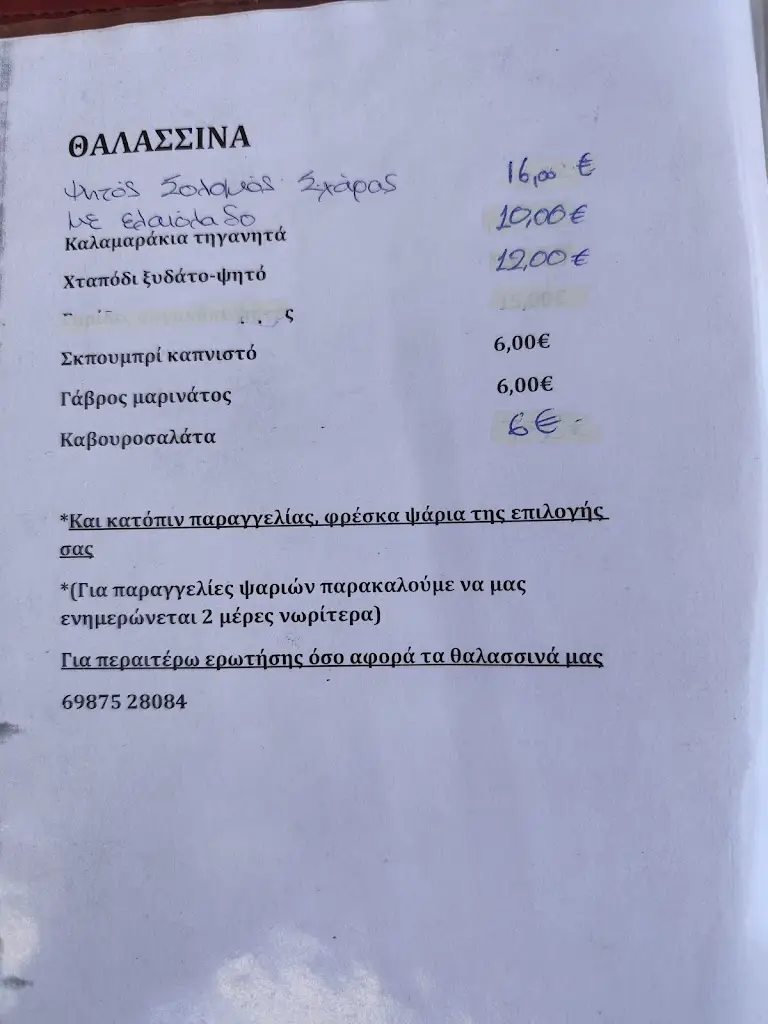 ΘΑΛΑΣΣΙΝΑ
Ψητός Σολομός Σχάρας 16,00 €
με ελαιόλαδο
Καλαμαράκια τηγανητά 10,00€
Χταπόδι ξυδάτο-ψητό 12,00€
15,00€
Σκπουμπρί καπνιστό 6,00€
Γάβρος μαρινάτος 6,00€
Καβουροσαλάτα 6€
*Και κατόπιν παραγγελίας, φρέσκα ψάρια της επιλογής
σας
*(Για παραγγελίες ψαριών παρακαλούμε να μας
ενημερώνεται 2 μέρες νωρίτερα)
Για περαιτέρω ερωτήσης όσο αφορά τα θαλασσινά μας
69875 28084